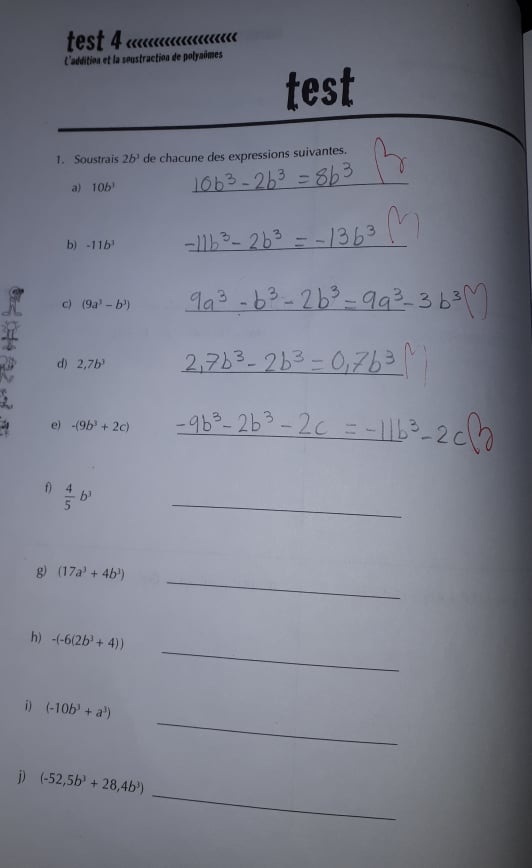 test 4 <<<<<<<<<<<<<<<<<<<<
L'addition et la soustraction de polynômes
test
1. Soustrais 2b³ de chacune des expressions suivantes.
a) 10b³ 10b³ - 2b³ = 8b³
b) -11b³ -11b³ - 2b³ = -13b³
c) (9a³ – b³) 9a³ - b³ - 2b³ = 9a³ - 3b³
d) 2,7b³ 2,7b³ - 2b³ = 0,7b³
e) -(9b³ + 2c) -9b³ - 2b³ - 2c = -11b³ - 2c
f) 4/5 b³
g) (17a³ + 4b³)
h) -(-6(2b³ + 4))
i) (-10b³ + a³)
j) (-52,5b³ + 28,4b³)